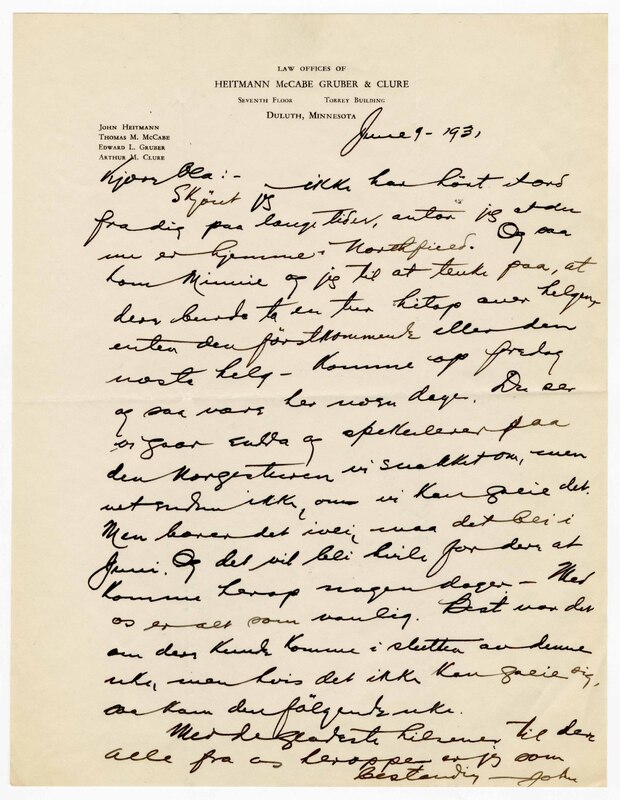 LAW OFFICES OF
HEITMANN McCABE GRUBER & CLURE
SEVENTH FLOOR TORREY BUILDING
DULUTH, MINNESOTA
JOHN HEITMANN
THOMAS M. McCABE
EDWARD L. GRUBER
ARTHUR M. CLURE
June 9 - 1931
Kjære Ola:-
Skjönt jeg ikke har hört et ord
fra dig paa lange tider, antar jeg at du
nu er hjemme i Northfield. Og saa
kom Minnie og jeg til at tenke paa, at
dere burde ta en tur hitop over helgen,
enten den förstkommende eller den
næste helg - Komme op fredag
og saa være her noen dage. Du ser
vi gaar enda og spekulerer paa
den Norgesturen vi snakket om, men
vet endnu ikke, om vi kan greie det.
Men bærer det ivei, maa det bli i
Juni. Og det vil bli hvile for dere at
komme herop nogen dager - Med
os er alt som vanlig. Best var det
om dere kunde komme i slutten av denne
uke, men hvis det ikke kan greie sig,
saa kom den fölgende uke.
Med de gladeste hilsener til dere
alle fra os heroppe er jeg som
bestandig - John